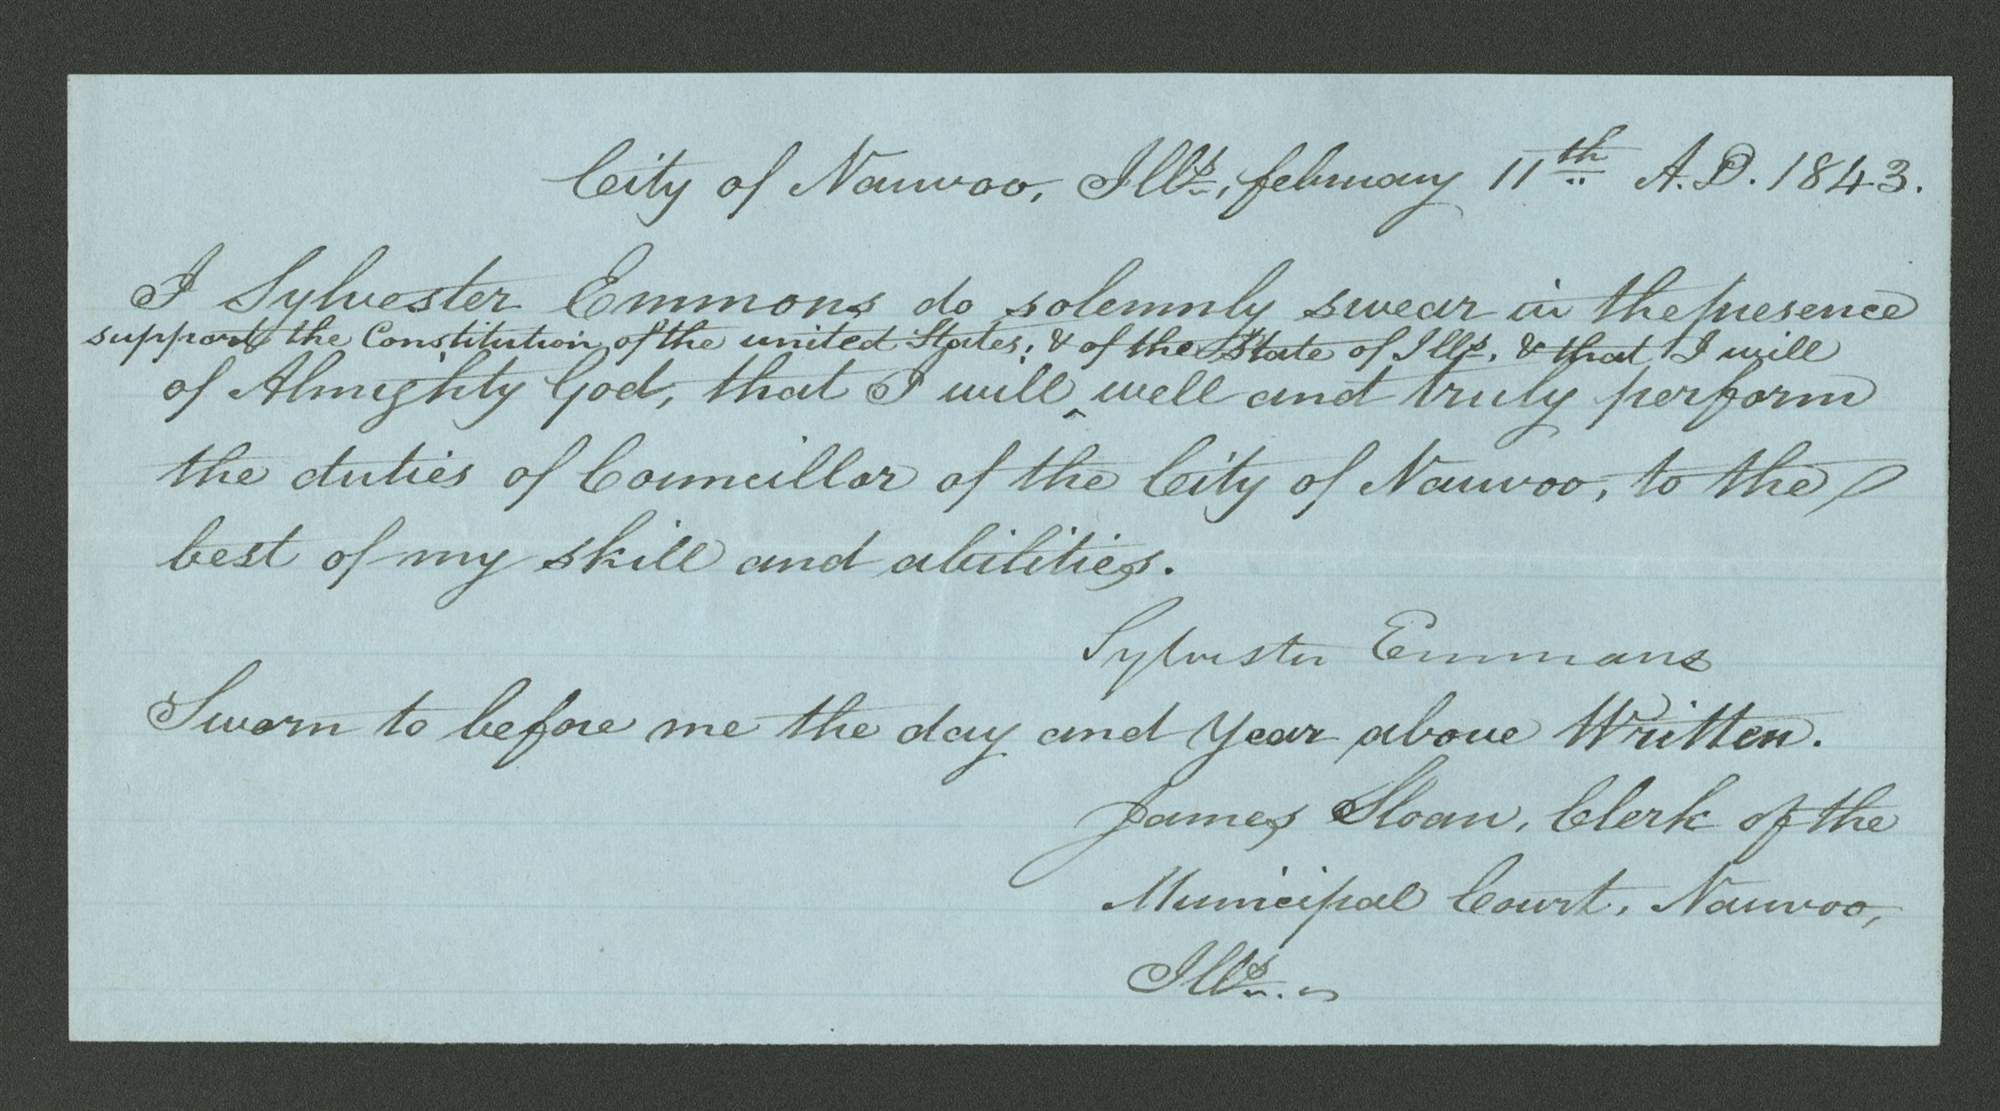 City of Nauvoo, Ills, february 11th A.D. 1843.
I Sylvester Emmons do solemnly swear in the presence
support the Constitution of the united States, & of the State of Ills, & that I will
of Almighty God, that I will ‸ well and truly perform
the duties of Councillor of the City of Nauvoo, to the
best of my skill and abilities.
Sylvester Emmons
Sworn to before me the day and Year above Written.
James Sloan, Clerk of the
Municipal Court, Nauvoo,
Ills.